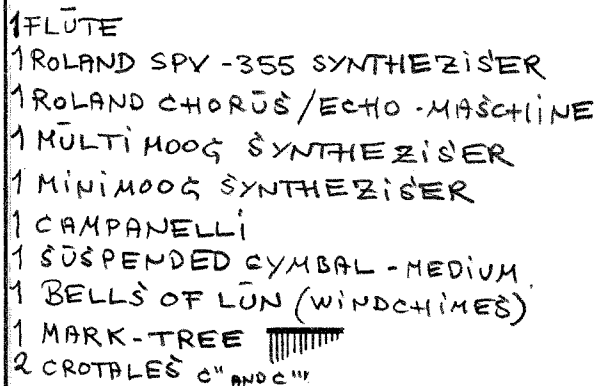 1 FLUTE
1 ROLAND SPV-355 SYNTHEZISER
1 ROLAND CHORUS/ECHO-MASCHINE
1 MULTIMOOG SYNTHEZISER
1 MINIMOOG SYNTHEZISER
1 CAMPANELLI
1 SUSPENDED CYMBAL - MEDIUM
1 BELLS OF LUN (WINDCHIMES)
1 MARK-TREE
2 CROTALES C" AND C"'